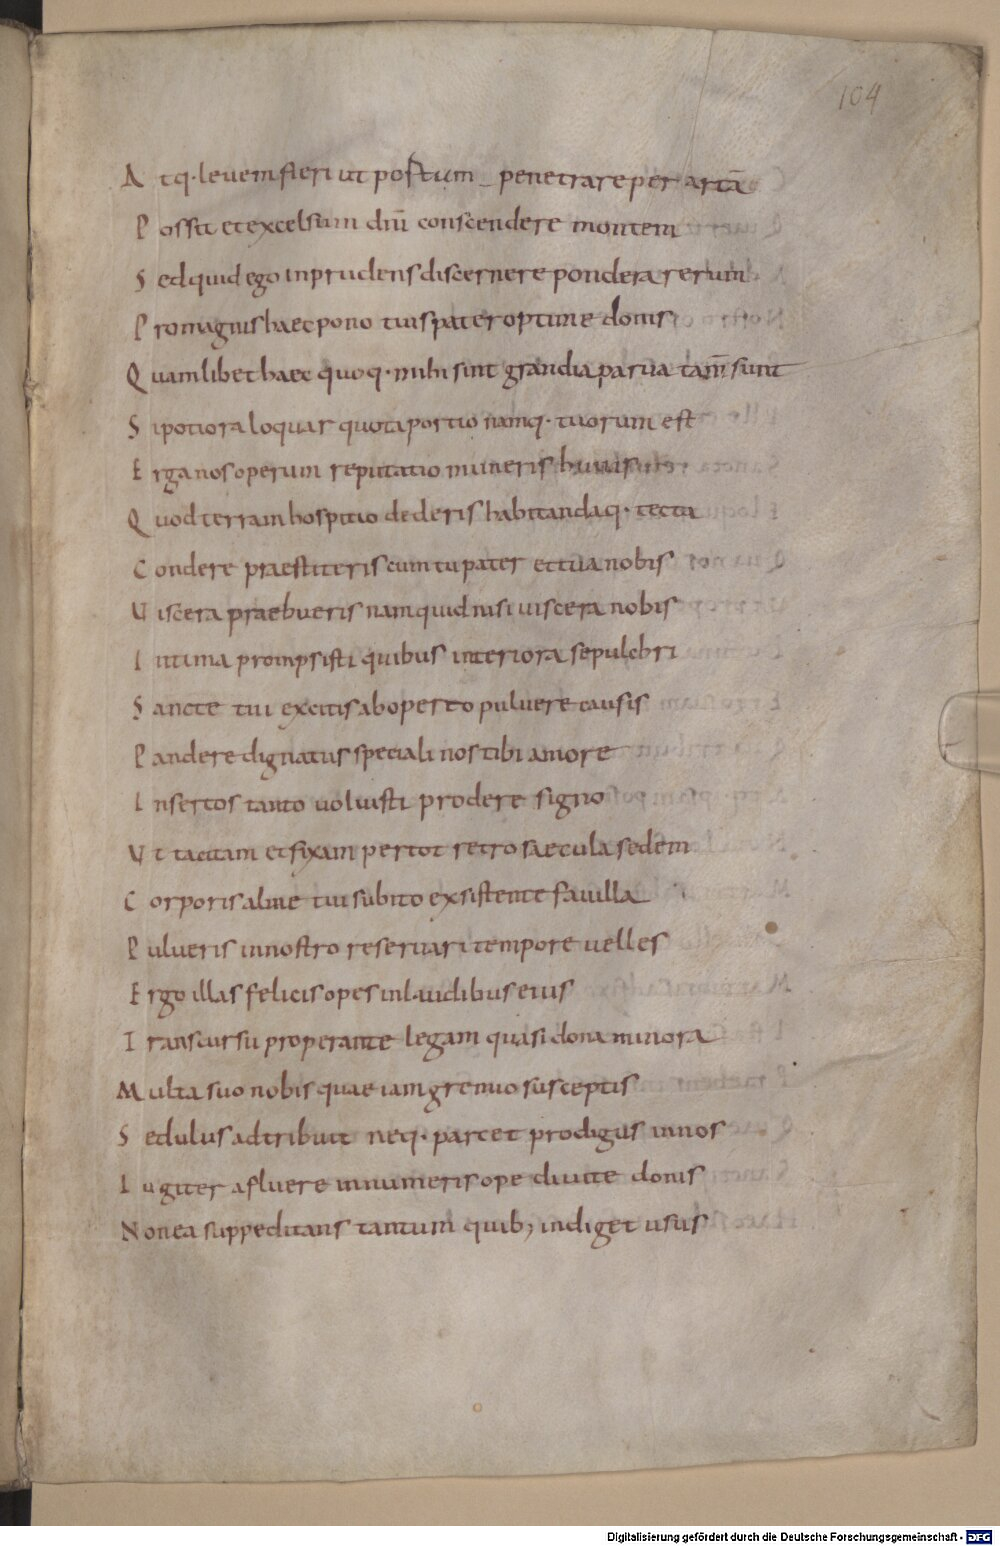 104
Atq·leuem fieri ut postum penetrare per artā
Possit et excelsum diuū conscendere montem
Sed quid ego inprudens discernere pondera rerum
Pro magnis haec pono tuis pater optime donis
Quamlibet haec quoq· mihi sint grandia parua tam̄ sunt
Si potiora loquar quota portio namq· tuorum est
Erga nos operum reputatio muneris huius
Quod terram hospitio dederis habitandaq· tecta
Condere praestiteris cum tu pater et tua nobis
Viscera praebueris nam quid nisi uiscera nobis
Intima prompsisti quibus interiora sepulchri
Sancte tui excitis ab operto puluere causis
Pandere dignatus speciali nos tibi amore
Insertos tanto uoluisti prodere signo
Vt tacitam et fixam per tot retro saecula sedem
Corporis alme tui subito exsistente fauilla
Pulueris in nostro reseruari tempore uelles
Ergo illas felicis opes in laudibus eius
Transcursu properante legam quasi dona minora
Multa suo nobis quae iam gremio susceptis
Sedulus adtribuit neq· parcet prodigus in nos
Iugiter afluere innumeris ope diuite donis
Non ea suppeditans tantum quib; indiget usus
Digitalisierung gefördert durch die Deutsche Forschungsgemeinschaft - DFG